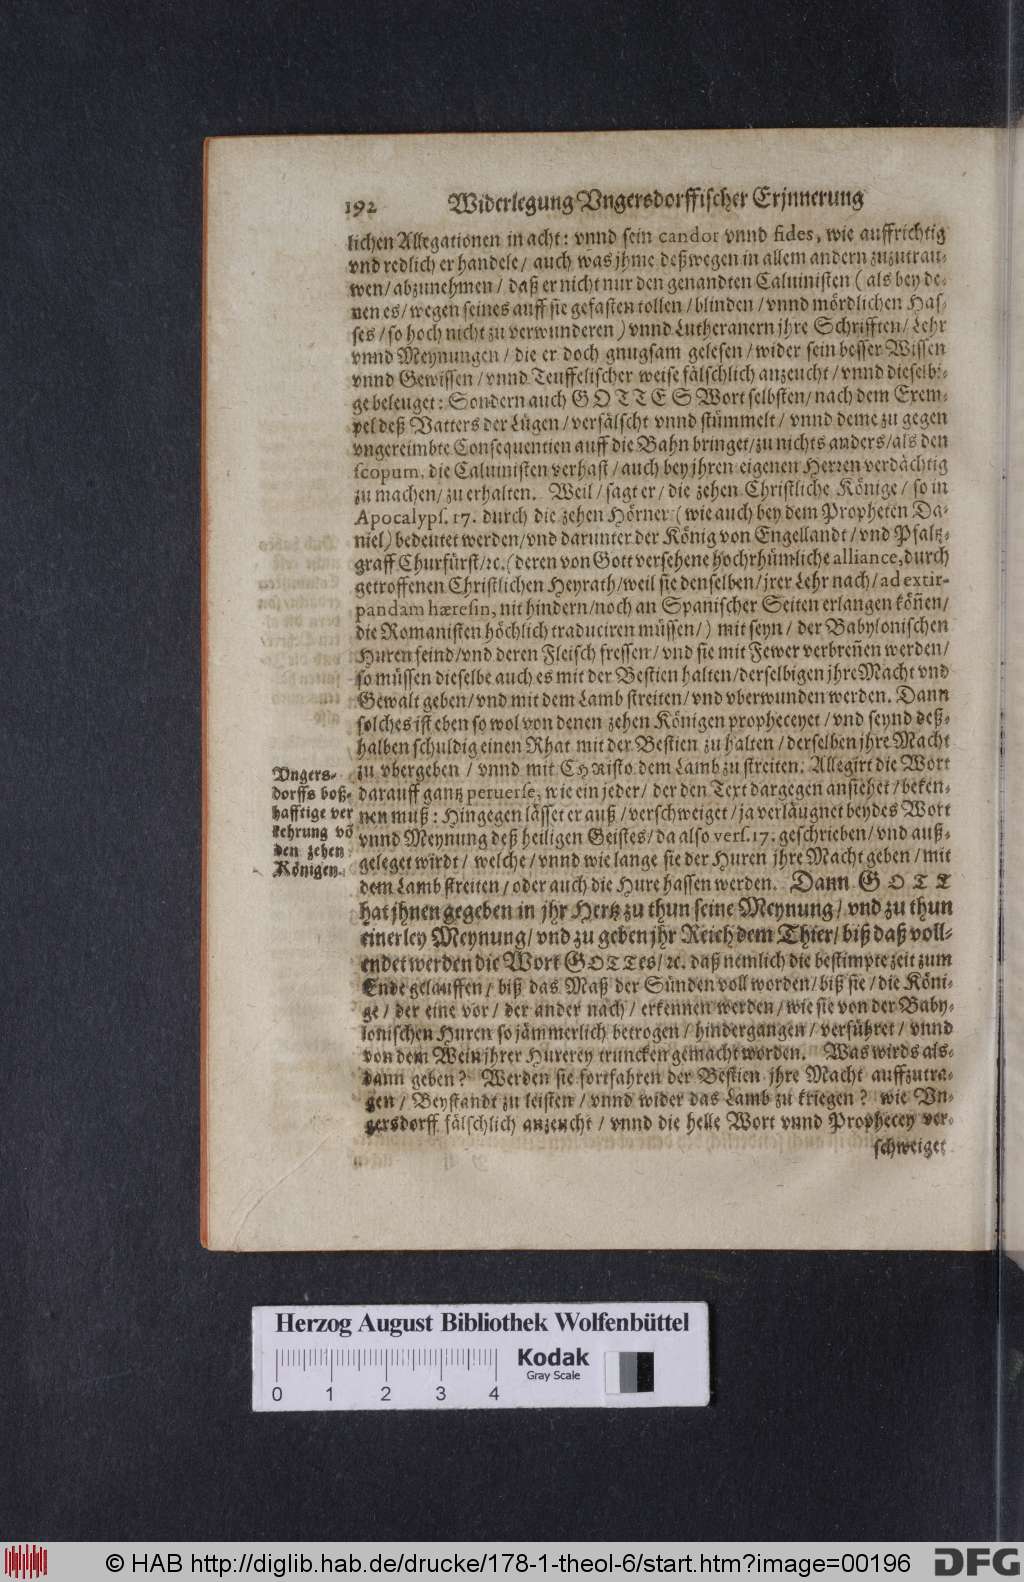 192 Widerlegung Vngersdorffischer Erjnnerung
lichen Allegationen in acht: vnnd sein candor vnnd fides, wie auffrichtig
vnd redlich er handele/ auch was jhme deßwegen in allem andern zuzutrau-
wen/ abzunehmen/ daß er nicht nur den genandten Caluinisten (als bey de-
nen es/ wegen seines auff sie gefasten tollen/ blinden/ vnnd mördlichen Has-
ses/ so hoch nicht zu verwunderen) vnnd Lutheranern jhre Schrifften/ Lehr
vnnd Meynungen/ die er doch gnugsam gelesen/ wider sein besser Wissen
vnnd Gewissen/ vnnd Teuffelischer weise fälschlich anzeucht/ vnnd dieselbi-
ge beleuget: Sondern auch GOTTES Wort selbsten/ nach dem Exem-
pel deß Vatters der Lügen/ versälscht vnnd stümmelt/ vnnd deme zu gegen
vngereimbte Consequentien auff die Bahn bringet/ zu nichts anders/ als den
scopum, die Caluinisten verhast/ auch bey jhren eigenen Herren verdächtig
zu machen/ zu erhalten. Weil/ sagt er/ die zehen Christliche Könige/ so in
Apocalyps. 17. durch die zehen Hörner (wie auch bey dem Propheten Da-
niel) bedeutet werden/ vnd darunter der König von Engellandt/ vnd Pfaltz-
graff Churfürst/ ꝛc. (deren von Gott versehene hochrhümliche alliance, durch
getroffenen Christlichen Heyrath/ weil sie denselben/ jrer Lehr nach/ ad extir-
pandam hæresin, nit hindern/ noch an Spanischer Seiten erlangen köñen/
die Romanisten höchlich traduciren müssen/) mit seyn/ der Babylonischen
Huren feind/ vnd deren Fleisch fressen/ vnd sie mit Fewer verbreñen werden/
so müssen dieselbe auch es mit der Bestien halten/ derselbigen jhre Macht vnd
Gewalt geben/ vnd mit dem Lamb streiten/ vnd vberwunden werden. Dann
solches ist eben so wol von denen zehen Königen propheceyet/ vnd seynd deß-
halben schuldig einen Rhat mit der Bestien zu halten/ derselben jhre Macht
zu vbergeben/ vnnd mit CHRisto dem Lamb zu streiten. Allegirt die Wort
darauff gantz peruerse, wie ein jeder/ der den Text dargegen ansiehet/ beken-
nen muß: Hingegen lässet er auß/ verschweiget/ ja verläugnet beydes Wort
vnnd Meynung deß heiligen Geistes/ da also vers. 17. geschrieben/ vnd auß-
geleget wirdt/ welche/ vnnd wie lange sie der Huren jhre Macht geben/ mit
dem Lamb streiten/ oder auch die Hure hassen werden. Dann GOTT
hat jhnen gegeben in jhr Hertz zu thun seine Meynung/ vnd zu thun
einerley Meynung/ vnd zu geben jhr Reich dem Thier/ biß daß voll-
endet werden die Wort GOTTes/ ꝛc. daß nemlich die bestimpte zeit zum
Ende gelauffen/ biß das Maß der Sünden voll worden/ biß sie/ die Köni-
ge/ der eine vor/ der ander nach/ erkennen werden/ wie sie von der Baby-
lonischen Huren so jämmerlich betrogen/ hindergangen/ verführet/ vnnd
von dem Wein jhrer Hurerey truncken gemacht worden. Was wirds als-
dann geben? Werden sie fortfahren der Bestien jhre Macht auffzutra-
gen/ Beystandt zu leisten/ vnnd wider das Lamb zu kriegen? wie Vn-
gersdorff fälschlich anzeucht/ vnnd die helle Wort vnnd Prophecey ver-
schweiget
Vngers-
dorffs boß-
hafftige ver
kehrung võ
den zehen
Königen.
Herzog August Bibliothek Wolfenbüttel
Kodak
Gray Scale
0 1 2 3 4
© HAB http://diglib.hab.de/drucke/178-1-theol-6/start.htm?image=00196
DFG